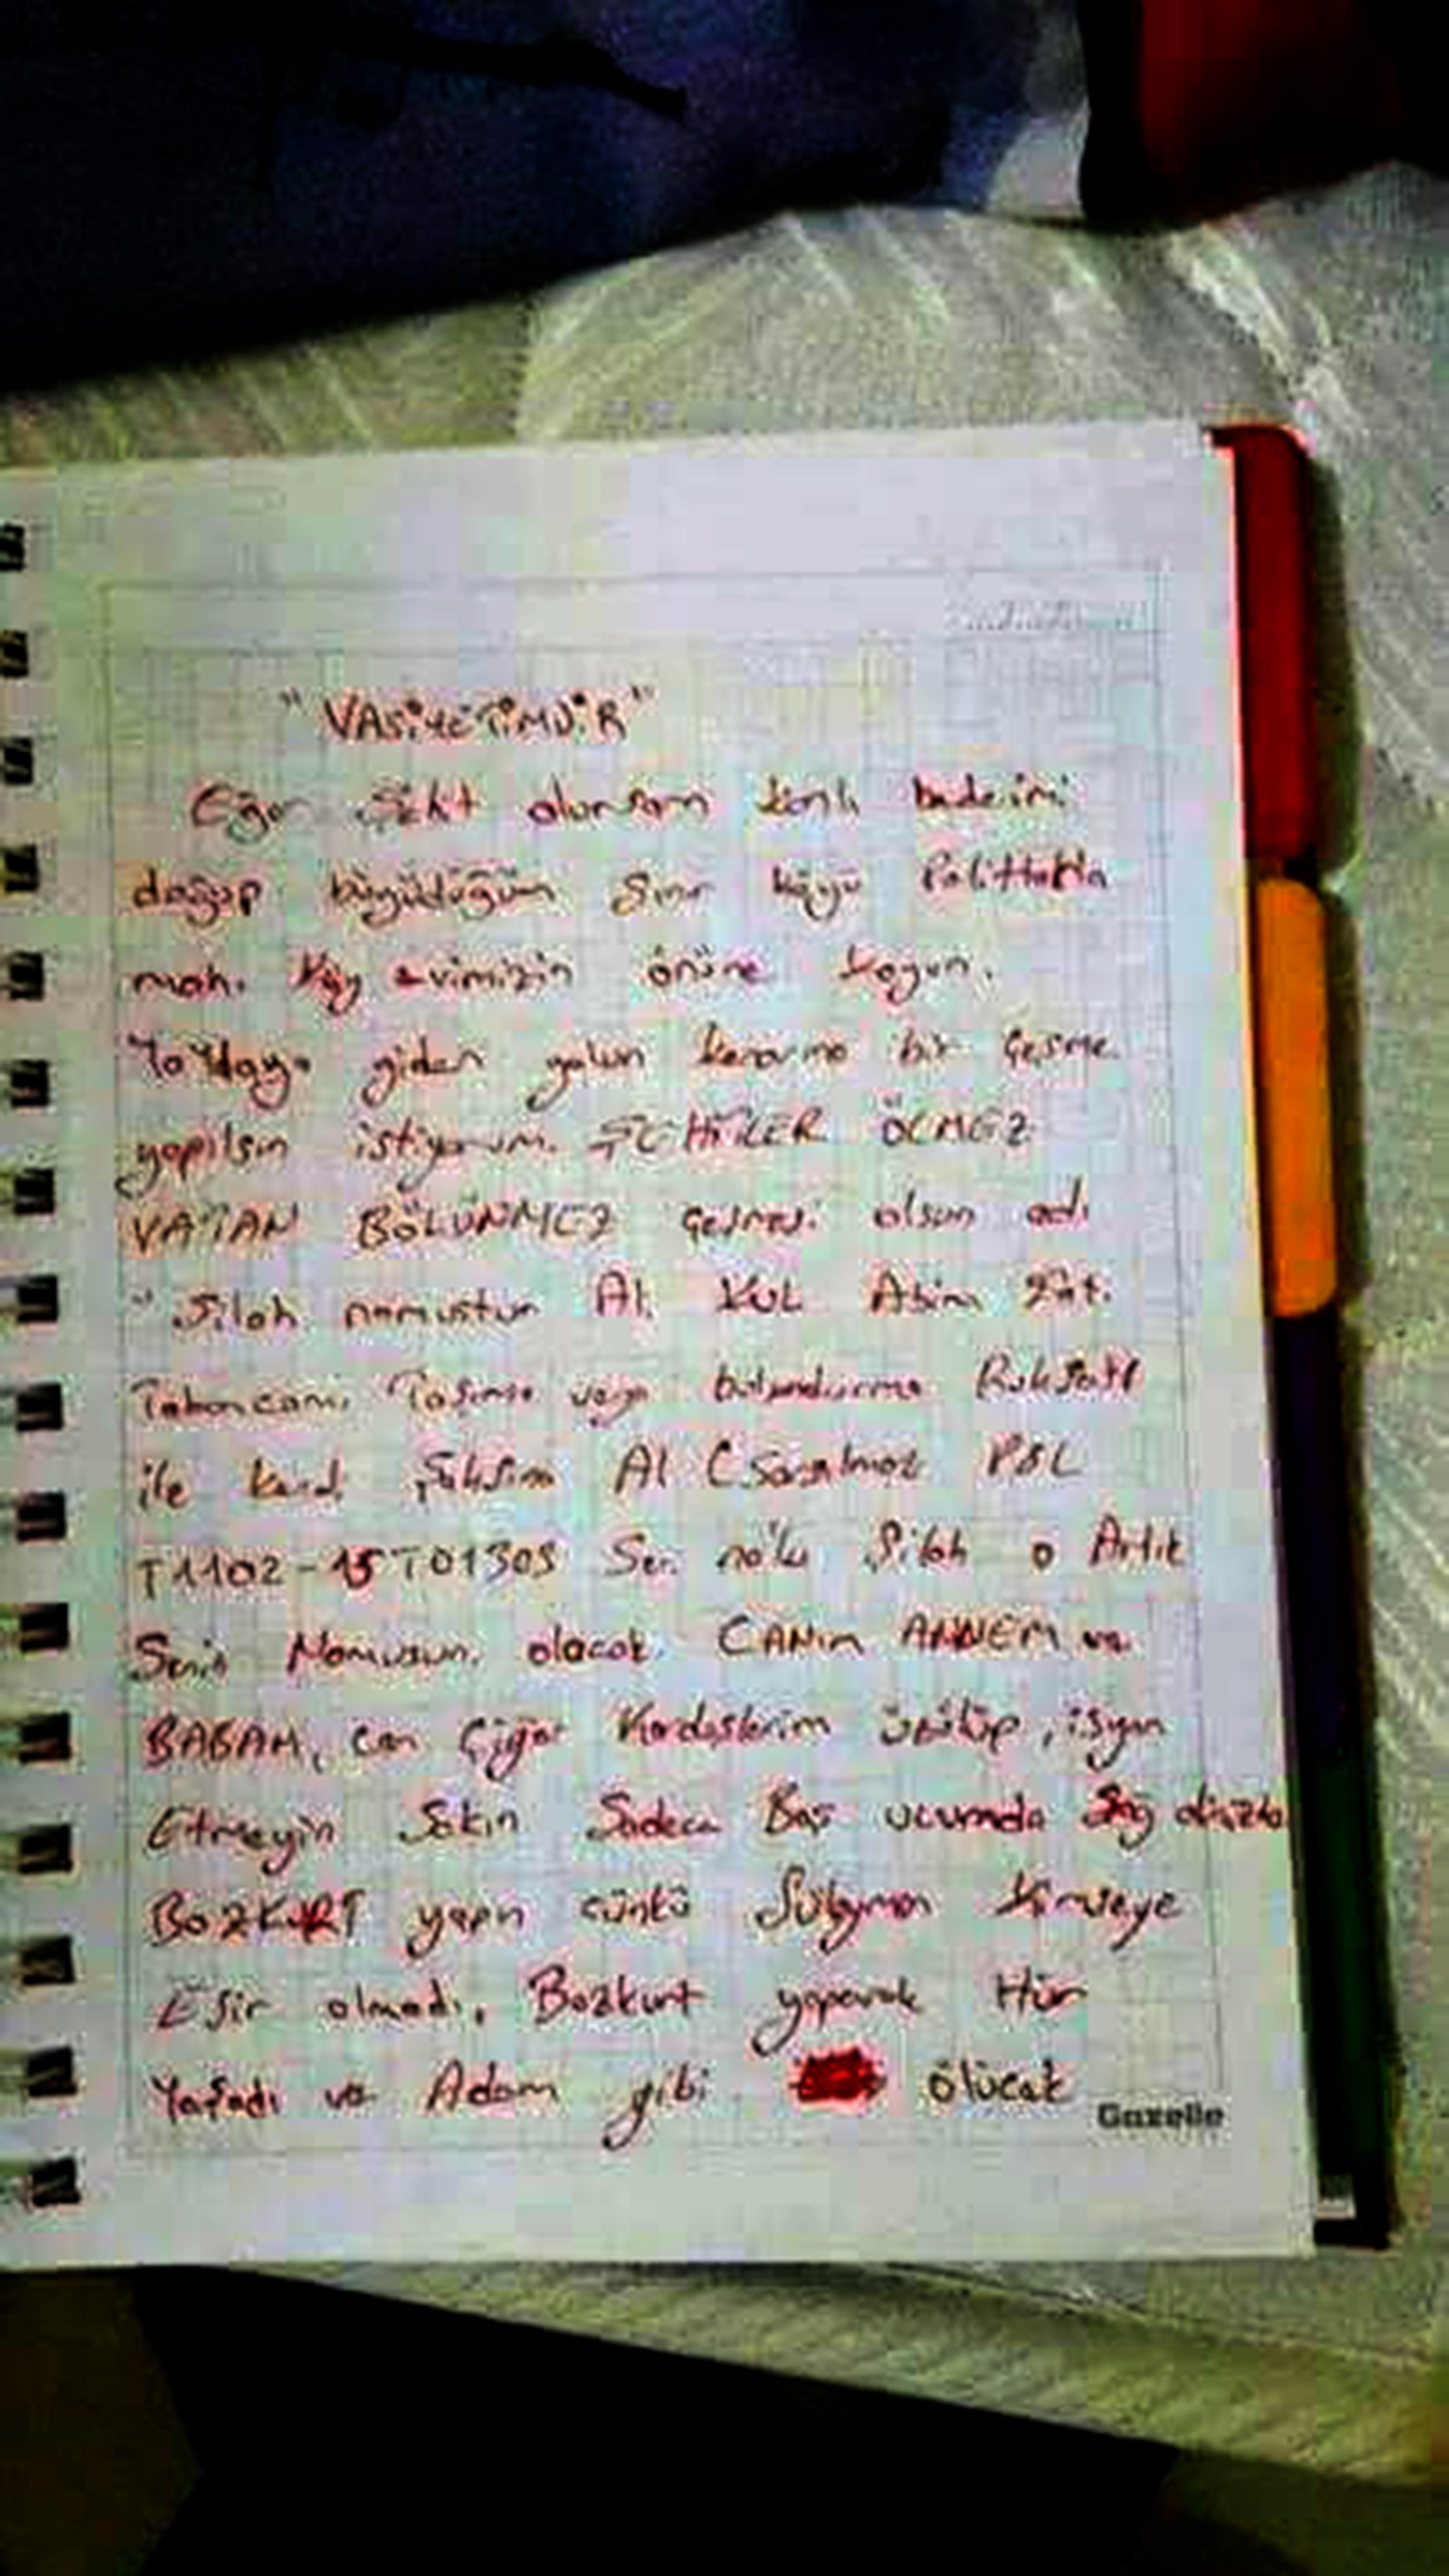 "VASİYETİMDİR"
Eğer Şehit olursam kanlı bedenimi
doğup büyüdüğüm Sınır köyü
mah. Köy evimizin önüne koyun.
Yaylaya giden yolun kenarına bir Çeşme
yapılsın istiyorum. ŞEHİTLER ÖLMEZ
VATAN BÖLÜNMEZ çeşmesi olsun adı
"Silah namustur Al. Abim
Tabancamı Taşıma veya bulundurma Ruhsatı
ile kendi Şahsına Al Csarsılmaz
T1102-15T01303 Seri no'lu Silah o Artık
Senin Namusun olacak. CANIM ANNEM ve
BABAM, can Ciğer Kardeşlerim üzülüp, isyan
Etmeyin Sakın Sadece Baş ucumda Sağ
BOZKURT yapın çünkü Süleyman Kimseye
Esir olmadı, Bozkurt yaparak Hür
Yaşadı ve Adam gibi ölücek
Gazelle